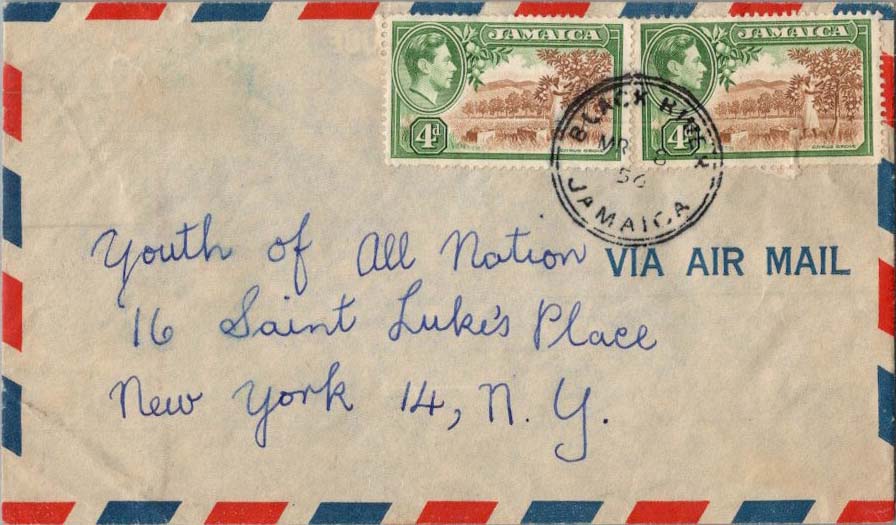 JAMAICA JAMAICA
4d 4d
CITRUS GROVE CITRUS GROVE
BLACK RIVER
MR 8
56
JAMAICA
VIA AIR MAIL
Youth of All Nation
16 Saint Luke's Place
New York 14, N. Y.